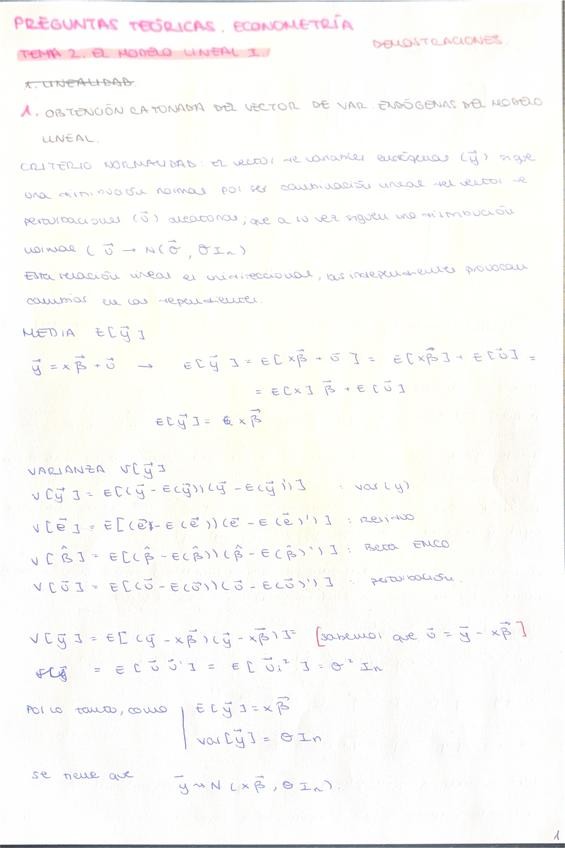 PREGUNTAS TEÓRICAS. ECONOMETRÍA
DEMOSTRACIONES.
TEMA 2. EL MODELO LINEAL I.
1. LINEALIDAD
1. OBTENCIÓN RAZONADA DEL VECTOR DE VAR. ENDÓGENAS DEL MODELO
LINEAL.
CRITERIO NORMALIDAD: El vector de variables endógenas (y⃗) sigue
una distribución normal por ser combinación lineal del vector de
perturbaciones (u⃗) aleatorias, que a su vez siguen una distribución
normal ( u⃗ → N(0⃗, σ In)
Esta relación lineal es unidireccional, las independientes provocan
cambios en las dependientes.
MEDIA E[y⃗]
y⃗ = xβ⃗ + u⃗ → E[y⃗] = E[xβ⃗ + u⃗] = E[xβ⃗] + E[u⃗] =
= E[x] β⃗ + E[u⃗]
E[y⃗] = xβ⃗
VARIANZA V[y⃗]
V[y⃗] = E[(y⃗ - E(y⃗))(y⃗ - E(y⃗)')] : var(y)
V[e⃗] = E[(e⃗ - E(e⃗))(e⃗ - E(e⃗)')] : Residuo
V[β̂] = E[(β̂ - E(β̂))(β̂ - E(β̂)')] : Beta EMCO
V[u⃗] = E[(u⃗ - E(u⃗))(u⃗ - E(u⃗)')] : perturbación.
V[y⃗] = E[(y⃗ - xβ⃗)(y⃗ - xβ⃗)]= [sabemos que u⃗ = y⃗ - xβ⃗]
= E[u⃗ u⃗'] = E[u⃗i²] = σ² In
Por lo tanto, como | E[y⃗] = xβ⃗
var[y⃗] = σ In
se tiene que y⃗ ~ N(xβ⃗, σ In).
1